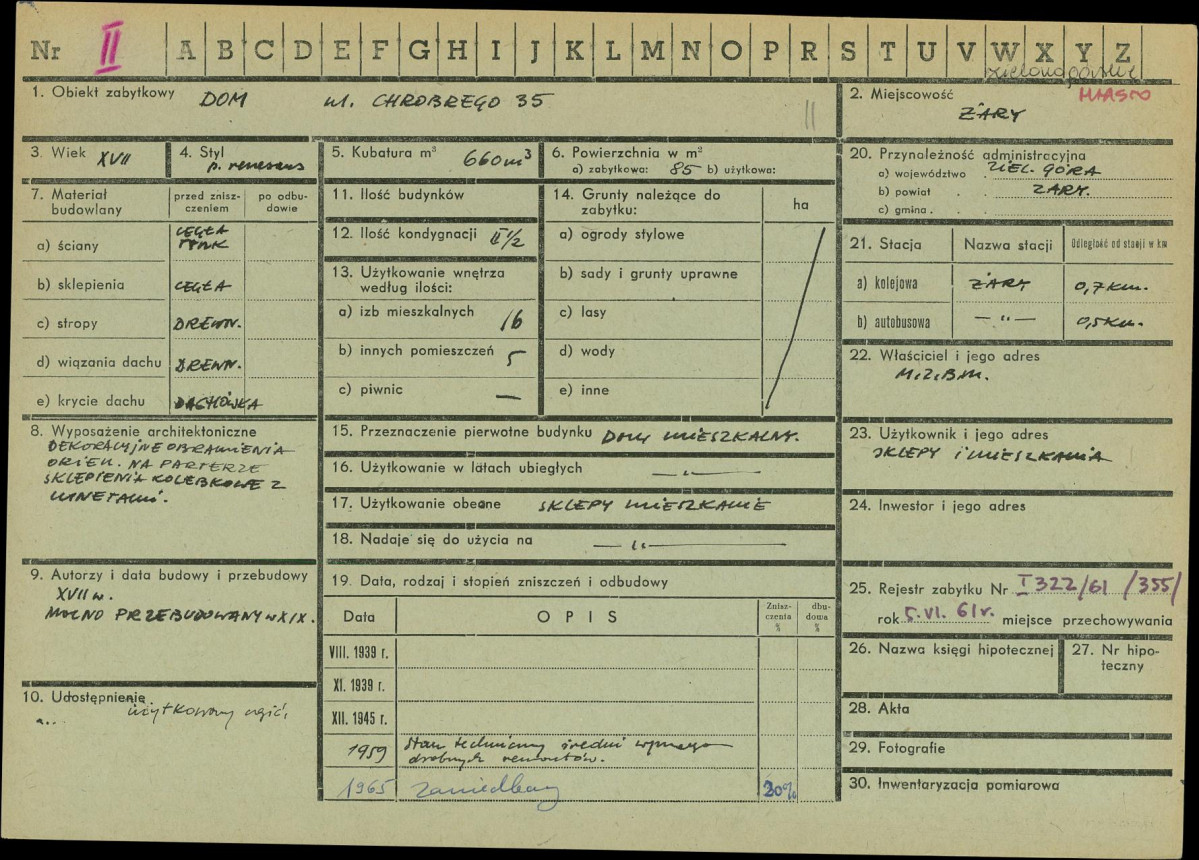 Nr II A B C D E F G H I J K L M N O P R S T U V W X Y Z
zielonogórskie
1. Obiekt zabytkowy DOM ul. CHROBREGO 35
2. Miejscowość MIASTO
ŻARY
3. Wiek XVII
4. Styl p. renesans
5. Kubatura m³ 660 m³
6. Powierzchnia w m²
a) zabytkowa: 85 b) użytkowa:
7. Materiał budowlany
przed znisz-
czeniem
po odbu-
dowie
a) ściany CEGŁA
TYNK
b) sklepienia CEGŁA
c) stropy DREWN.
d) wiązania dachu DREWN.
e) krycie dachu DACHÓWKA
8. Wyposażenie architektoniczne
DEKORACYJNE OBRAMIENIA
OKIEN. NA PARTERZE
SKLEPIENIA KOLEBKOWE Z
LUNETAMI.
9. Autorzy i data budowy i przebudowy
XVII w.
MOCNO PRZEBUDOWANY w XIX.
10. Udostępnienie
użytkowany
11. Ilość budynków
12. Ilość kondygnacji II 1/2
13. Użytkowanie wnętrza
według ilości:
a) izb mieszkalnych 16
b) innych pomieszczeń 5
c) piwnic —
14. Grunty należące do
zabytku:
ha
a) ogrody stylowe
b) sady i grunty uprawne
c) lasy
d) wody
e) inne
15. Przeznaczenie pierwotne budynku DOM MIESZKALNY.
16. Użytkowanie w latach ubiegłych — " —
17. Użytkowanie obecne SKLEPY MIESZKANIE
18. Nadaje się do użycia na — " —
19. Data, rodzaj i stopień zniszczeń i odbudowy
Data
OPIS
Znisz-
czenia
%
dbu-
dowa
%
VIII. 1939 r.
XI. 1939 r.
XII. 1945 r.
1959 Stan techniczny średni wymaga
drobnych remontów.
1965 zaniedbany 20%
20. Przynależność administracyjna
a) województwo ZIEL. GÓRA
b) powiat ŻARY.
c) gmina
21. Stacja Nazwa stacji Odległość od stacji w km
a) kolejowa ŻARY 0,7 km.
b) autobusowa — " — 0,5 km.
22. Właściciel i jego adres
M.Z.B.M.
23. Użytkownik i jego adres
SKLEPY i MIESZKANIA
24. Inwestor i jego adres
25. Rejestr zabytku Nr I 322/61 /355/
rok 5.VI. 61 r. miejsce przechowywania
26. Nazwa księgi hipotecznej
27. Nr hipo-
teczny
28. Akta
29. Fotografie
30. Inwentaryzacja pomiarowa